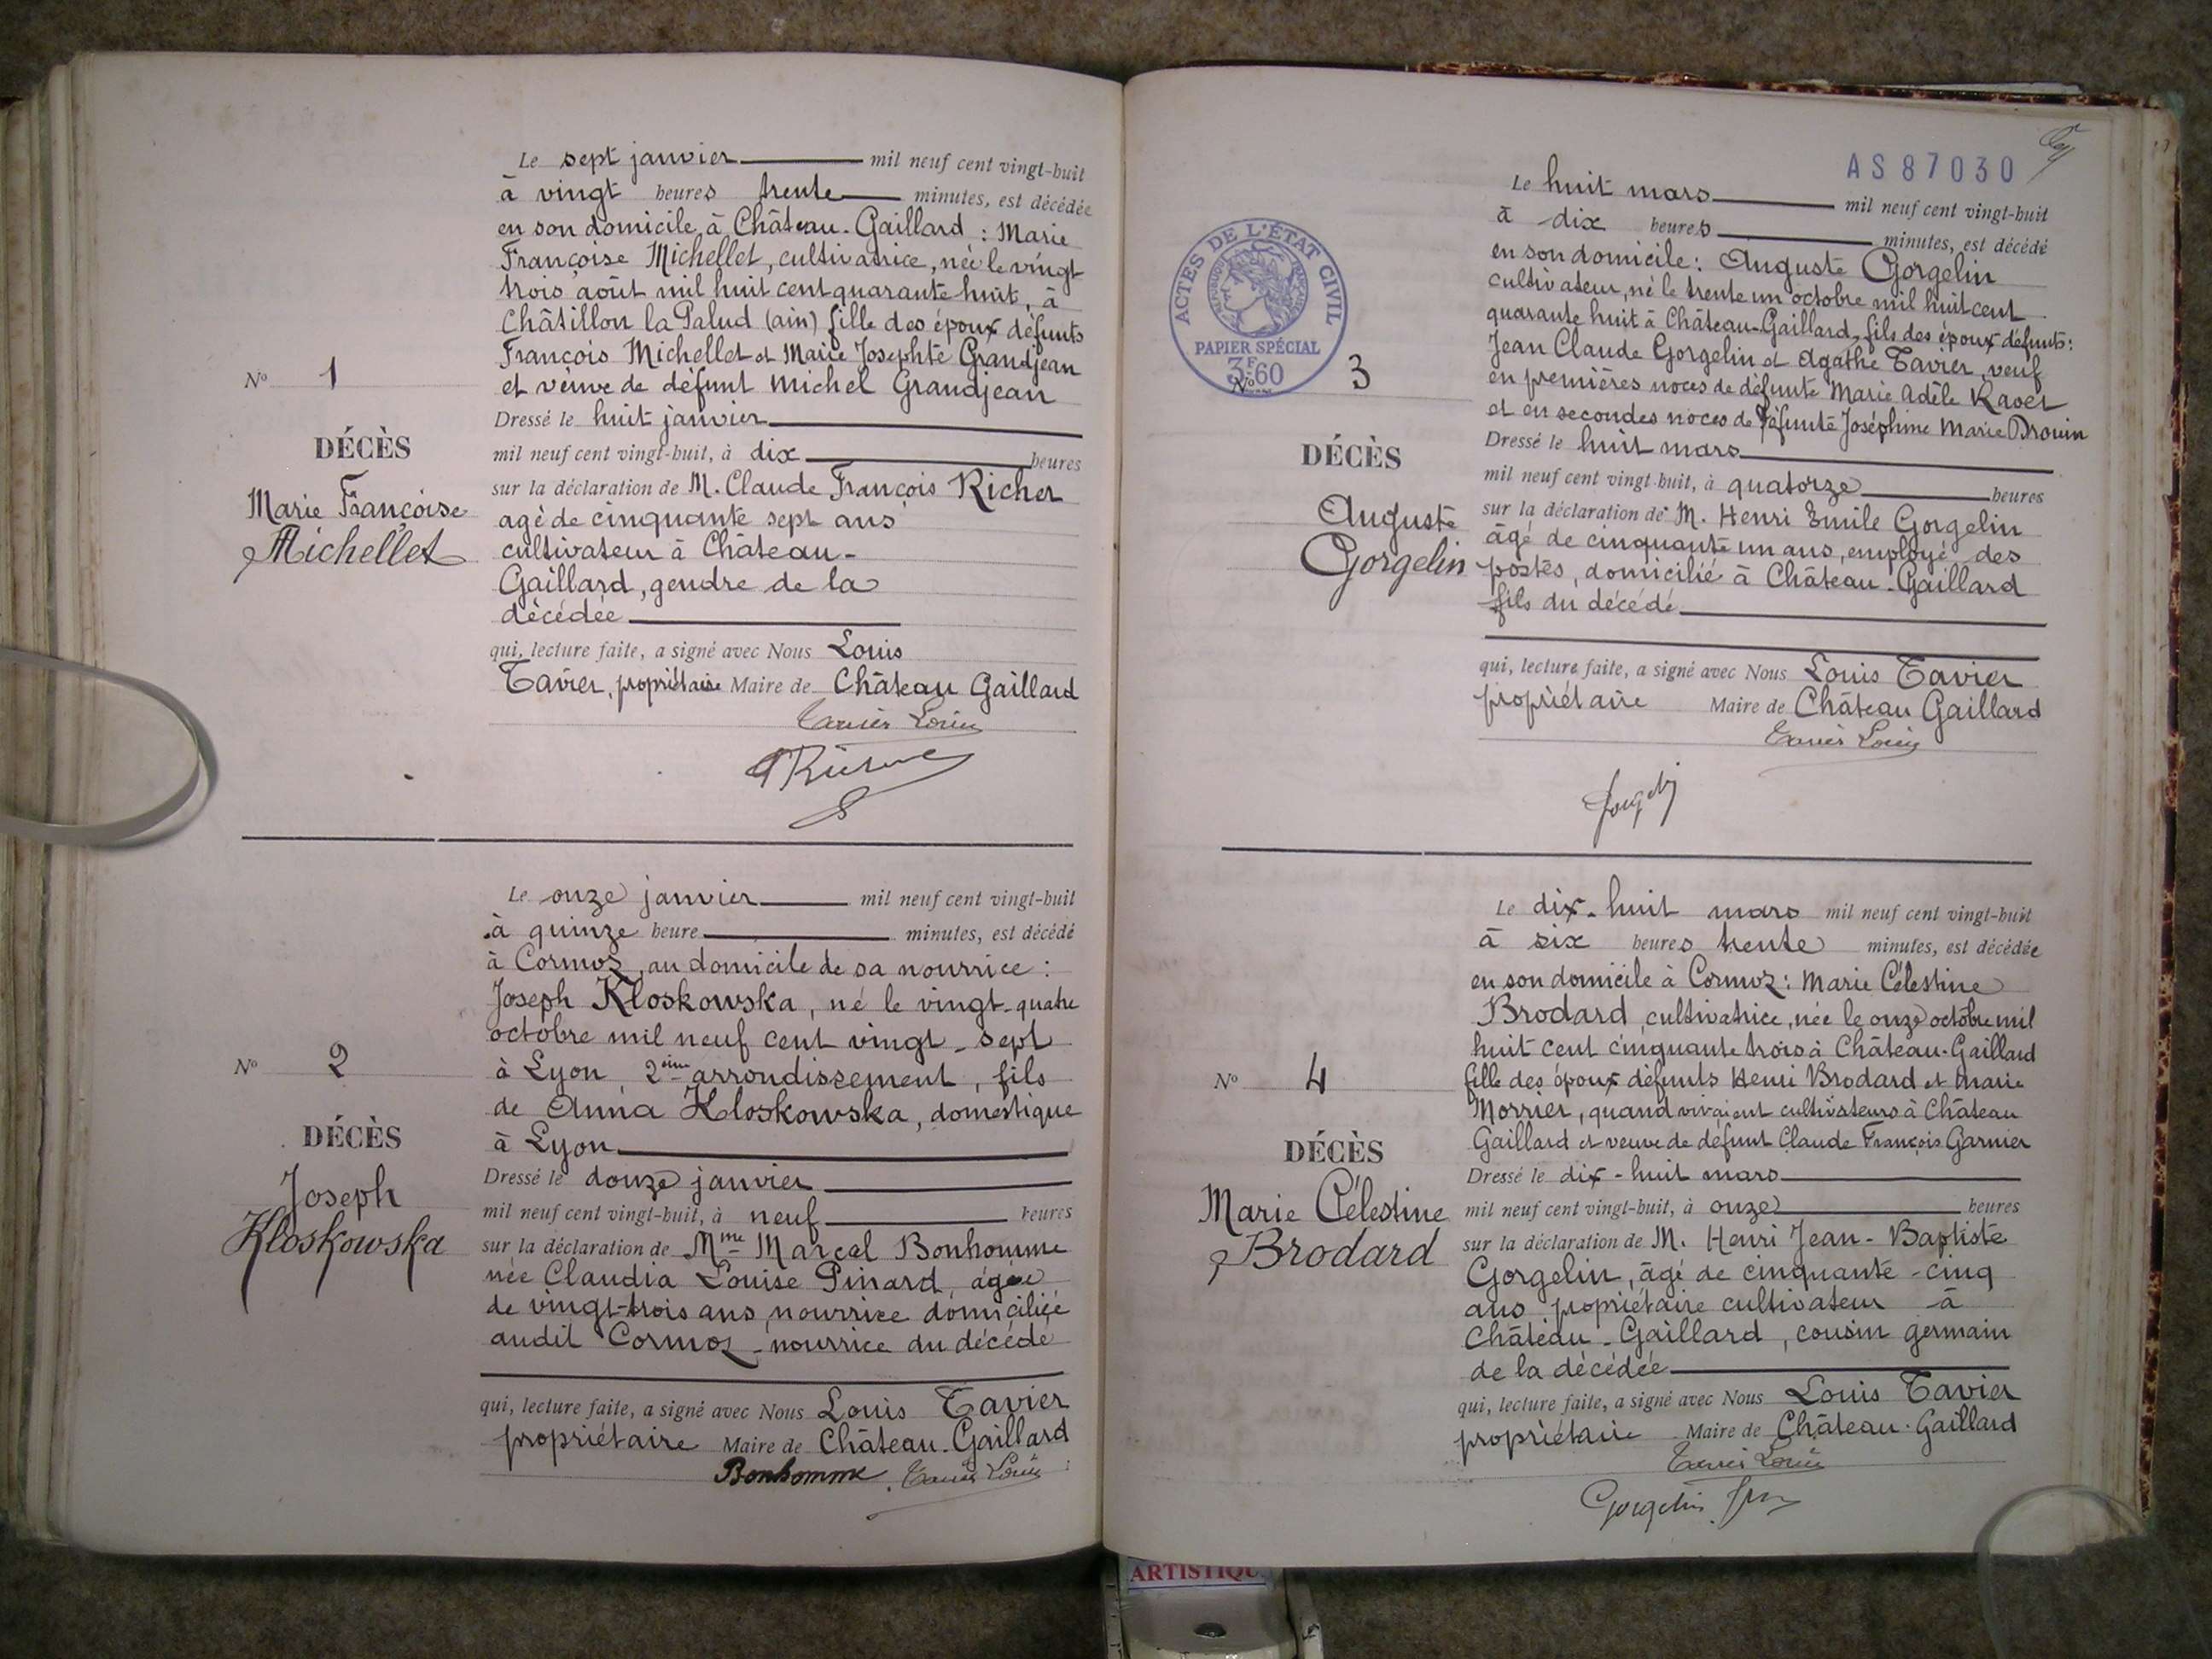 Le sept janvier mil neuf cent vingt-huit
à vingt heures trente minutes, est décédée
en son domicile, à Château-Gaillard : Marie
Françoise Michellet, cultivatrice, née le vingt
trois août mil huit cent quarante huit, à
Châtillon la Palud (ain) fille des époux défunts
François Michellet et Marie Josephte Grandjean
et veuve de défunt Michel Grandjean
Nº 1
DÉCÈS
Marie Françoise
Michellet
Dressé le huit janvier
mil neuf cent vingt-huit, à dix heures
sur la déclaration de M. Claude François Richer
agé de cinquante sept ans
cultivateur à Château-
Gaillard, gendre de la
décédée
qui, lecture faite, a signé avec Nous Louis
Tavier, propriétaire Maire de Château Gaillard
Tavier Louis
Le onze janvier mil neuf cent vingt-huit
à quinze heure minutes, est décédé
à Cormoz, au domicile de sa nourrice :
Joseph Kloskowska, né le vingt-quatre
octobre mil neuf cent vingt-sept
à Lyon, 2ème arrondissement, fils
de Anna Kloskowska, domestique
à Lyon
Nº 2
DÉCÈS
Joseph
Kloskowska
Dressé le douze janvier
mil neuf cent vingt-huit, à neuf heures
sur la déclaration de Mme Marcel Bonhomme
née Claudia Louise Pinard, agée
de vingt-trois ans, nourrice domiciliée
audit Cormoz, nourrice du décédé
qui, lecture faite, a signé avec Nous Louis Tavier
propriétaire Maire de Château-Gaillard
Bonhomme Tavier Louis
AS87030
ACTES DE L'ÉTAT CIVIL
RÉPUBLIQUE FRANÇAISE
PAPIER SPÉCIAL
3F.60
Le huit mars mil neuf cent vingt-huit
à dix heures minutes, est décédé
en son domicile : Auguste Gorgelin
cultivateur, né le trente un octobre mil huit cent
quarante huit à Château-Gaillard, fils des époux défunts :
Jean Claude Gorgelin et Agathe Tavier, veuf
en premières noces de défunte Marie Adèle Ravet
et en secondes noces de défunte Joséphine Marie Drouin
Nº 3
DÉCÈS
Auguste
Gorgelin
Dressé le huit mars
mil neuf cent vingt-huit, à quatorze heures
sur la déclaration de M. Henri Emile Gorgelin
âgé de cinquante un ans, employé des
postes, domicilié à Château-Gaillard
fils du décédé
qui, lecture faite, a signé avec Nous Louis Tavier
propriétaire Maire de Château Gaillard
Tavier Louis
Le dix-huit mars mil neuf cent vingt-huit
à six heures trente minutes, est décédée
en son domicile à Cormoz : Marie Célestine
Brodard, cultivatrice, née le onze octobre mil
huit cent cinquante trois à Château-Gaillard
fille des époux défunts Henri Brodard et Marie
Morrier, quand vivaient cultivateurs à Château
Gaillard et veuve de défunt Claude François Garnier
Nº 4
DÉCÈS
Marie Célestine
Brodard
Dressé le dix-huit mars
mil neuf cent vingt-huit, à onze heures
sur la déclaration de M. Henri Jean-Baptiste
Gorgelin, âgé de cinquante-cinq
ans propriétaire cultivateur à
Château-Gaillard, cousin germain
de la décédée
qui, lecture faite, a signé avec Nous Louis Tavier
propriétaire Maire de Château-Gaillard
Tavier Louis
Gorgelin
ARTISTIQU